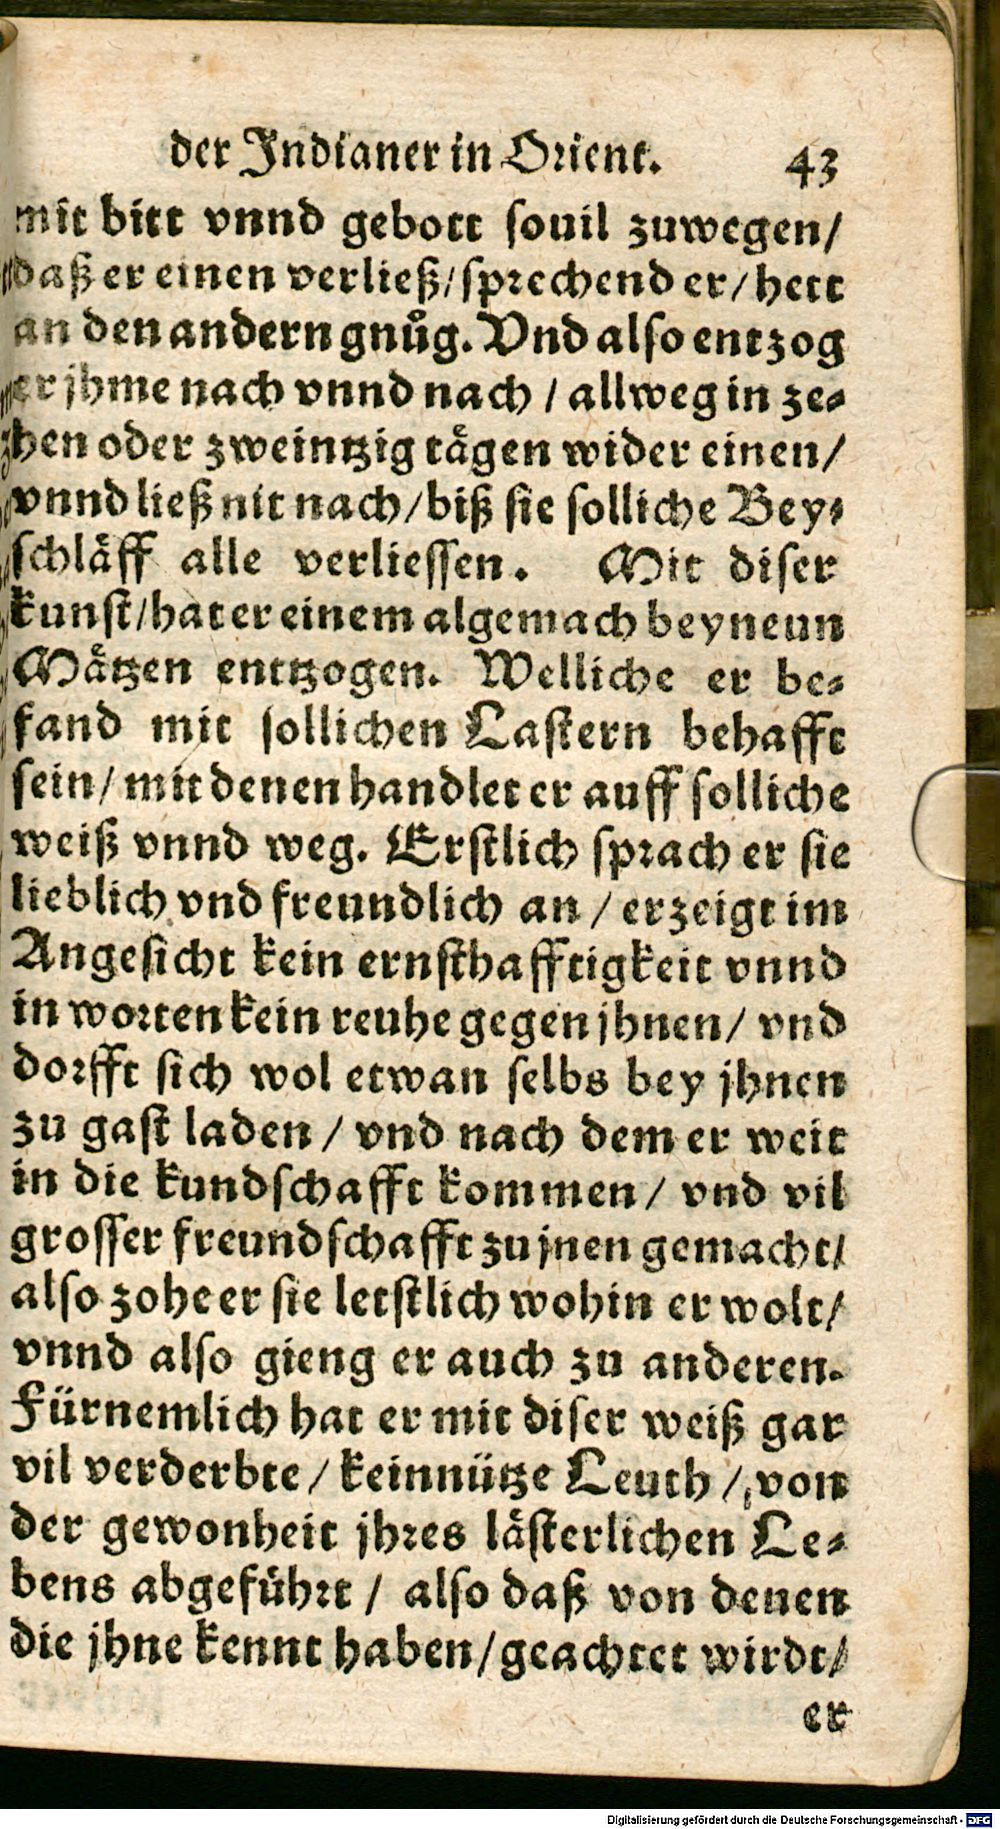 der Indianer in Orient. 43
mit bitt vnnd gebott souil zuwegen/
daß er einen verließ/ sprechend er/ hett
an den andern gnůg. Vnd also entzog
er jhme nach vnnd nach / allweg in ze-
hen oder zweintzig tägen wider einen/
vnnd ließ nit nach/ biß sie solliche Bey-
schläff alle verliessen. Mit diser
kunst/ hat er einem algemach bey neun
Mätzen enttzogen. Welliche er be-
fand mit sollichen Lastern behafft
sein/ mit denen handlet er auff solliche
weiß vnnd weg. Erstlich sprach er sie
lieblich vnd freundlich an / erzeigt im
Angesicht kein ernsthafftigkeit vnnd
in worten kein reuhe gegen jhnen/ vnd
dorfft sich wol etwan selbs bey jhnen
zu gast laden / vnd nach dem er weit
in die kundschafft kommen/ vnd vil
grosser freundschafft zu jnen gemacht/
also zohe er sie letstlich wohin er wolt/
vnnd also gieng er auch zu anderen.
Fürnemlich hat er mit diser weiß gar
vil verderbte / keinnütze Leuth / von
der gewonheit jhres lästerlichen Le-
bens abgeführt / also daß von denen
die jhne kennt haben/ geachtet wirdt/
er
Digitalisierung gefördert durch die Deutsche Forschungsgemeinschaft - DFG